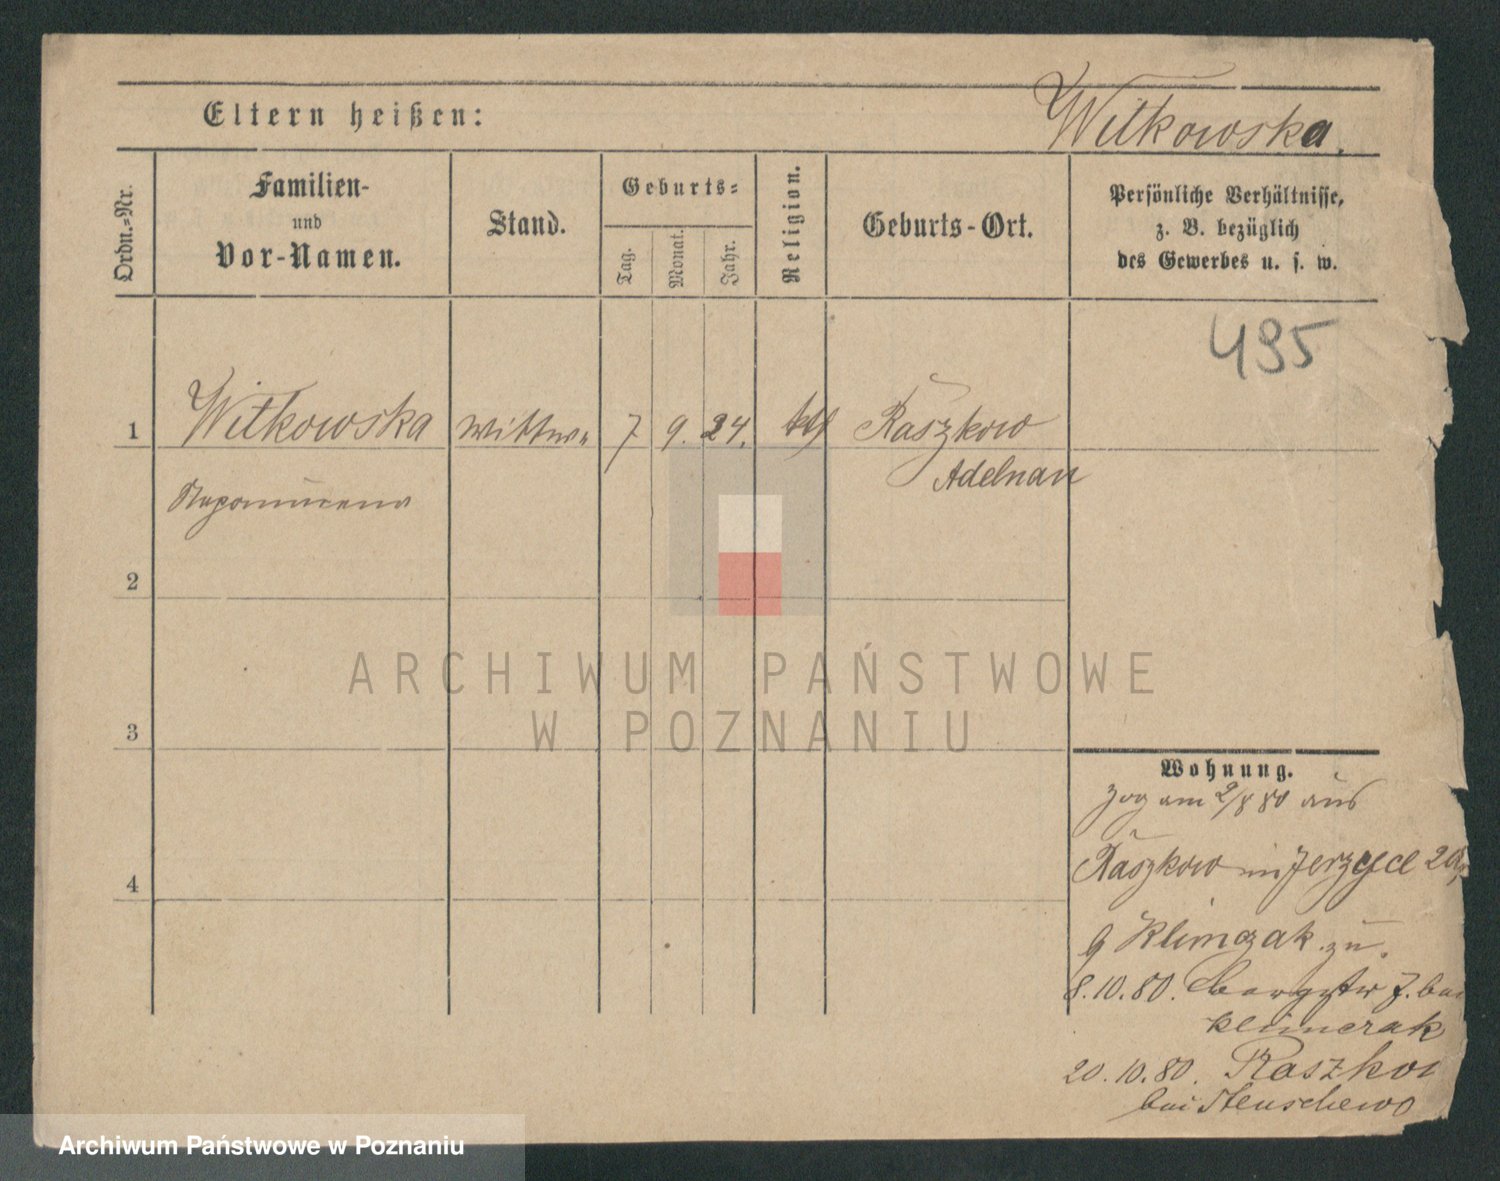 Eltern heißen:
Witkowska.
Ordn.-Nr.
Familien-
und
Vor-Namen.
Stand.
Geburts-
Tag.
Monat.
Jahr.
Religion.
Geburts-Ort.
Persönliche Verhältnisse,
z. B. bezüglich
des Gewerbes u. s. w.
495
1 Witkowska Wittwe 7 9. 24. kth Raszkow
Adelnau
Nepomucena
2
3
4
ARCHIWUM PAŃSTWOWE
W POZNANIU
Wohnung.
zog am 2/8 80 aus
Raszkow in Jerzyce
Klimczak zu.
8.10.80. 7. bei
Klimczak
20.10.80. Raszkow
bei
Archiwum Państwowe w Poznaniu